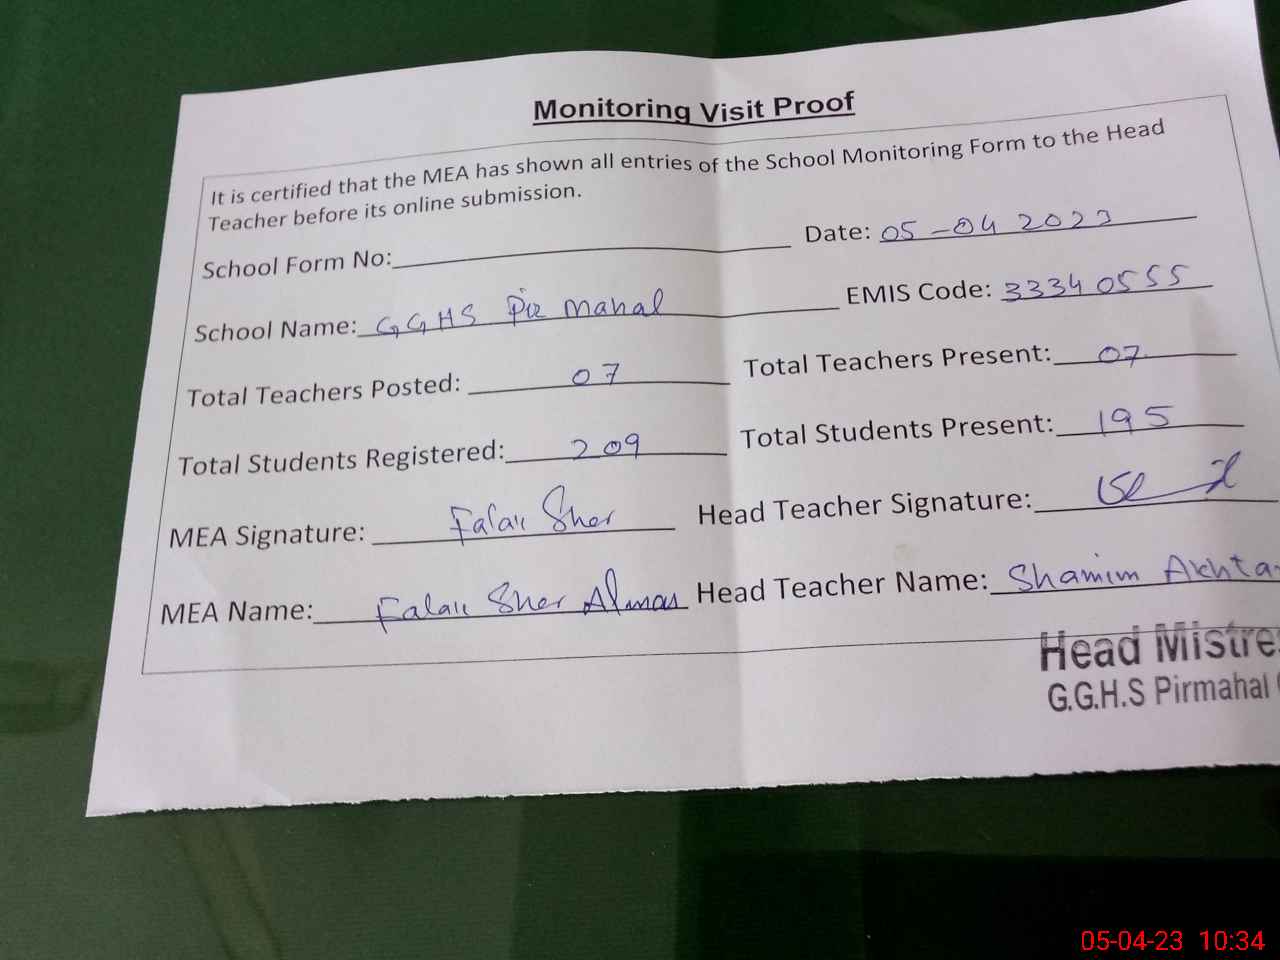 Monitoring Visit Proof
It is certified that the MEA has shown all entries of the School Monitoring Form to the Head
Teacher before its online submission.
School Form No: Date: 05-04 2023
School Name: GGHS Pir Mahal EMIS Code: 33340555
Total Teachers Posted: 07 Total Teachers Present: 07
Total Students Registered: 209 Total Students Present: 195
MEA Signature: Falak Sher Head Teacher Signature:
MEA Name: Falak Sher Head Teacher Name: Shamim Akhta
Head Mistre
G.G.H.S Pirmahal
05-04-23 10:34